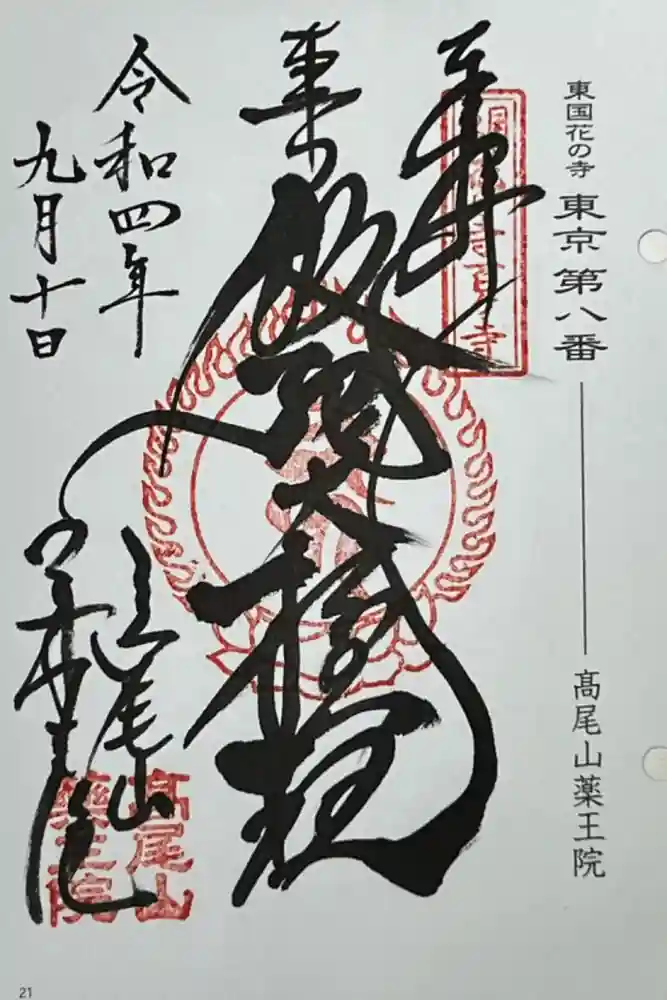 東国花の寺 東京第八番 ― 高尾山薬王院
奉拝
飯縄大権現
令和四年
九月十日
高尾山
薬王院
高尾山
薬王院
21